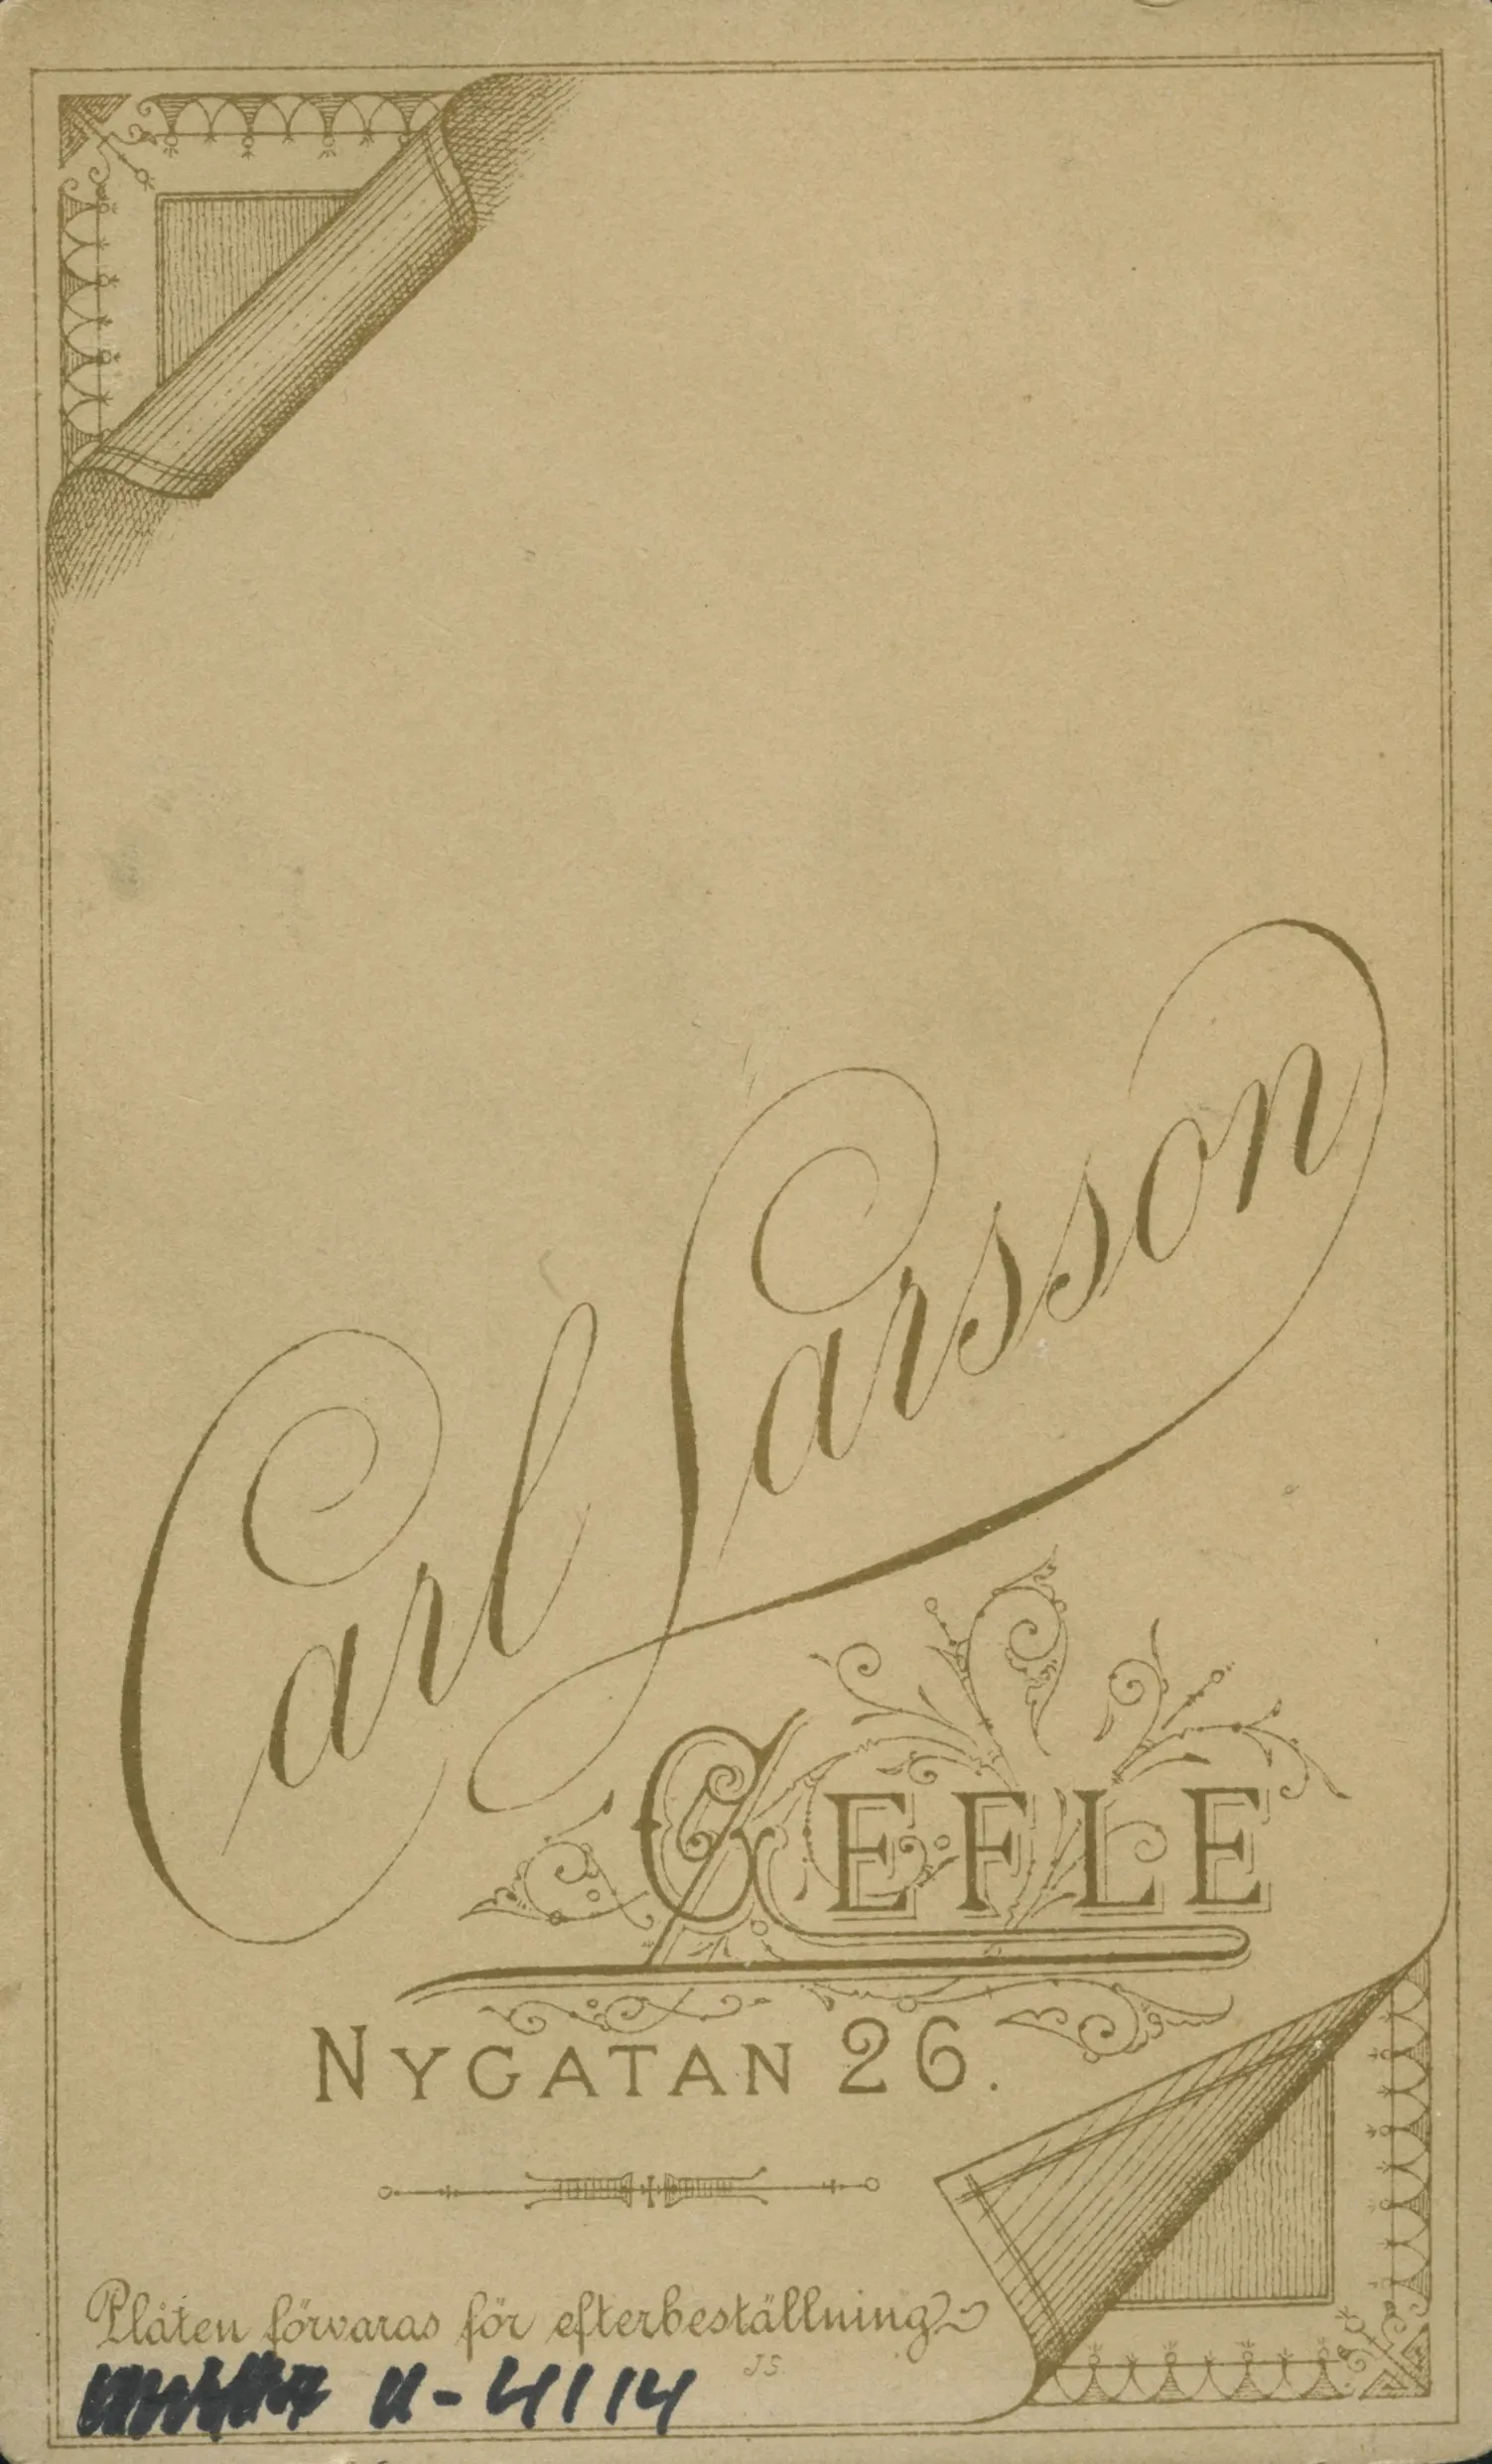 Carl Larsson
GEFLE
NYGATAN 26.
Plåten förvaras för efterbeställning
JS.
U-4114